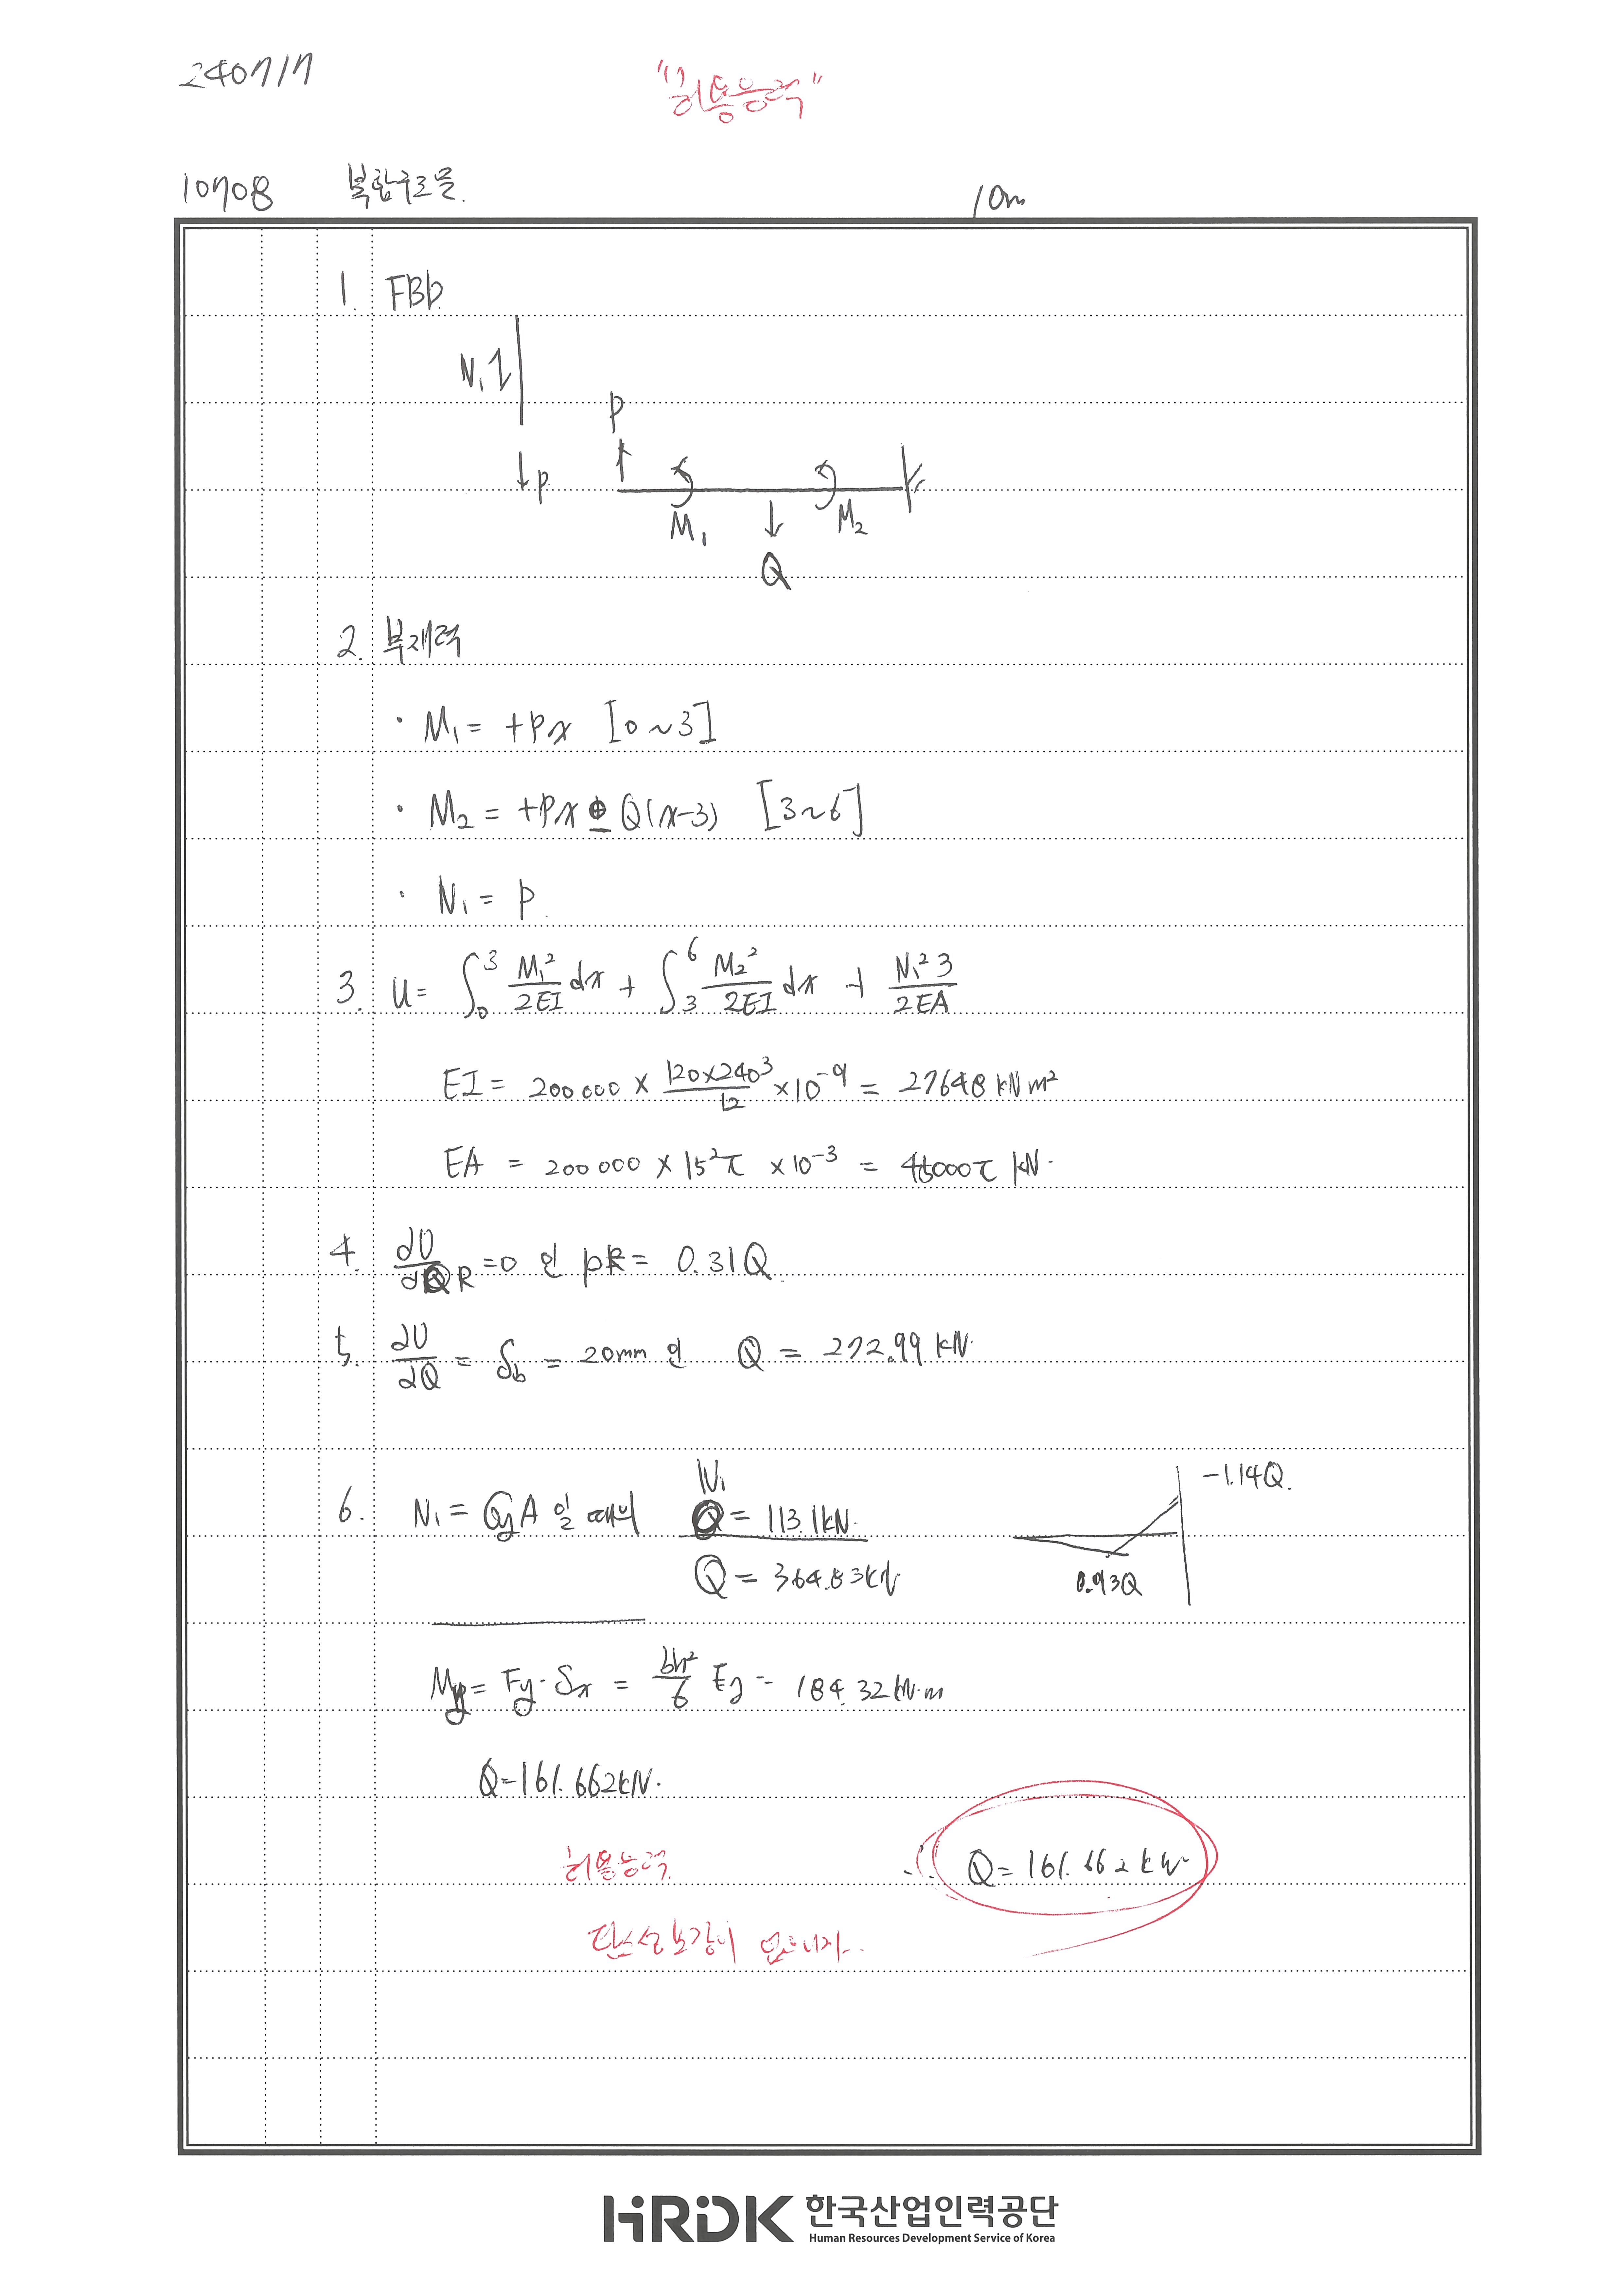 240717
"허용응력"
10708 복합구조물. 10m
1. FBD
N₁
P
P
M₁
M₂
Q
2. 부재력
· M₁ = +Px [0~3]
· M₂ = +Px - Q(x-3) [3~6]
· N₁ = P
3. U = ∫₀³ M₁²/2EI dx + ∫₃⁶ M₂²/2EI dx + N₁²3/2EA
EI = 200000 × 120×240³/12 ×10⁻⁹ = 27648 kNm²
EA = 200000 × 15²π ×10⁻³ = 45000π kN.
4. ∂U/∂R = 0 인 P = 0.31Q
5. ∂U/∂Q = δb = 20mm 인 Q = 272.99 kN.
6. N₁ = σyA 일 때의 N₁ = 113.1kN.
-1.14Q.
Q = 364.83kN
0.93Q
My = Fy·Sx = bh²/6 Fy = 184.32kN·m
Q=161.662kN.
허용응력
∴ Q=161.662kN
탄성보강이 없으니까..
HRDK 한국산업인력공단
Human Resources Development Service of Korea